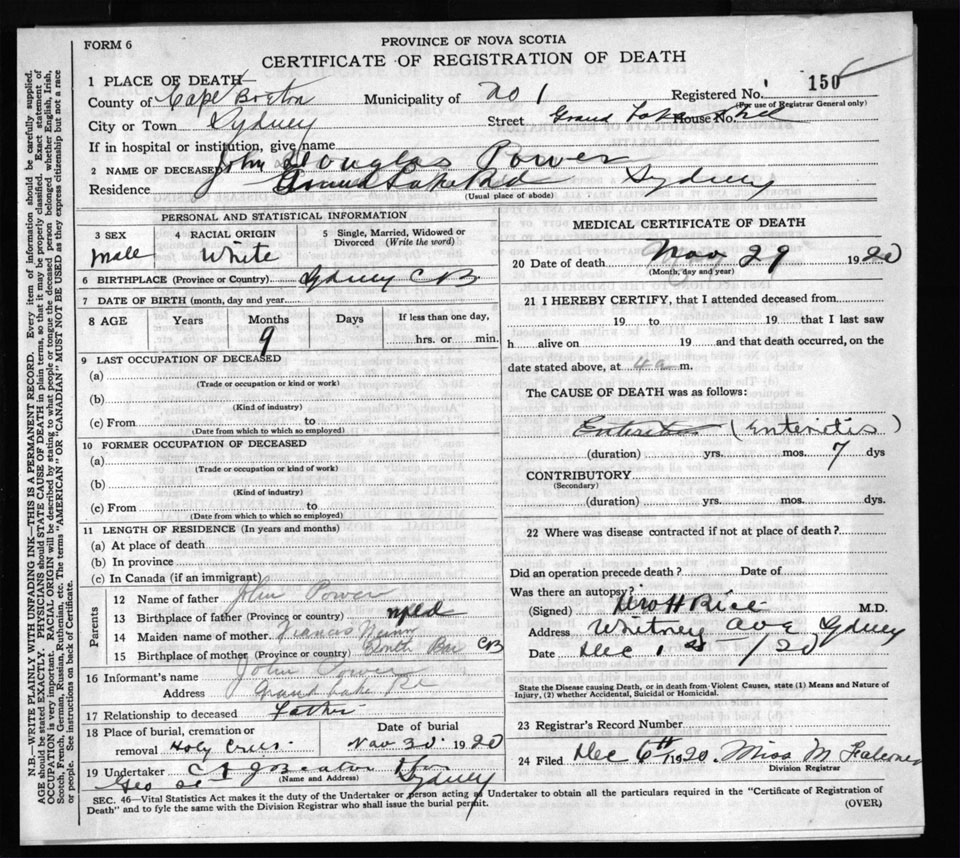 FORM 6
PROVINCE OF NOVA SCOTIA
CERTIFICATE OF REGISTRATION OF DEATH
1 PLACE OF DEATH
Registered No. 150
(For use of Registrar General only)
County of Cape Breton Municipality of No 1
City or Town Sydney Street Grand Lake Rd House No.
If in hospital or institution, give name
2 NAME OF DECEASED John Douglas Power
Residence Grand Lake Rd Sydney
(Usual place of abode)
PERSONAL AND STATISTICAL INFORMATION
3 SEX 4 RACIAL ORIGIN 5 Single, Married, Widowed or Divorced (Write the word)
male White
6 BIRTHPLACE (Province or Country) Sydney C B
7 DATE OF BIRTH (month, day and year)
8 AGE Years Months Days If less than one day,
9 hrs. or min.
9 LAST OCCUPATION OF DECEASED
(a)
(Trade or occupation or kind or work)
(b)
(Kind of industry)
(c) From to
(Date from which to which so employed)
10 FORMER OCCUPATION OF DECEASED
(a)
(Trade or occupation or kind of work)
(b)
(Kind of industry)
(c) From to
(Date from which to which so employed)
11 LENGTH OF RESIDENCE (In years and months)
(a) At place of death
(b) In province
(c) In Canada (if an immigrant)
Parents
12 Name of father John Power
13 Birthplace of father (Province or country) Nfld
14 Maiden name of mother Frances
15 Birthplace of mother (Province or country) CB
16 Informant's name John Power
Address Grand Lake Rd
17 Relationship to deceased Father
18 Place of burial, cremation or removal Holy Cross Date of burial Nov 30 1920
19 Undertaker J Beaton
(Name and Address)
Geo St Sydney
MEDICAL CERTIFICATE OF DEATH
20 Date of death Nov 29 1920
(Month, day and year)
21 I HEREBY CERTIFY, that I attended deceased from
19 to 19 that I last saw
h alive on 19 and that death occurred, on the
date stated above, at 4 a m.
The CAUSE OF DEATH was as follows:
Enteritis (Enteritis)
(duration) yrs. mos. 7 dys
CONTRIBUTORY
(Secondary)
(duration) yrs. mos. dys.
22 Where was disease contracted if not at place of death?
Did an operation precede death? Date of
Was there an autopsy?
(Signed) Rice M.D.
Address Whitney Ave Sydney
Date Dec 1st /20
State the Disease causing Death, or in death from Violent Causes, state (1) Means and Nature of
Injury, (2) whether Accidental, Suicidal or Homicidal.
23 Registrar's Record Number
24 Filed Dec 6th 1920 Miss M Falconer
Division Registrar
SEC. 46—Vital Statistics Act makes it the duty of the Undertaker or person acting as Undertaker to obtain all the particulars required in the "Certificate of Registration of
Death" and to fyle the same with the Division Registrar who shall issue the burial permit.
(OVER)
N.B.—WRITE PLAINLY WITH UNFADING INK—THIS IS A PERMANENT RECORD. Every item of information should be carefully supplied.
AGE should be stated EXACTLY. PHYSICIANS should STATE CAUSE OF DEATH in plain terms, so that it may be properly classified. Exact statement of
OCCUPATION is very important. RACIAL ORIGIN will be described by stating to what people or tongue the deceased person belonged whether English, Irish,
Scotch, French, German, Russian, Ruthenian, etc. The terms "AMERICAN" OR "CANADIAN" MUST NOT BE USED as they express citizenship but not a race
or people. See instructions on back of Certificate.